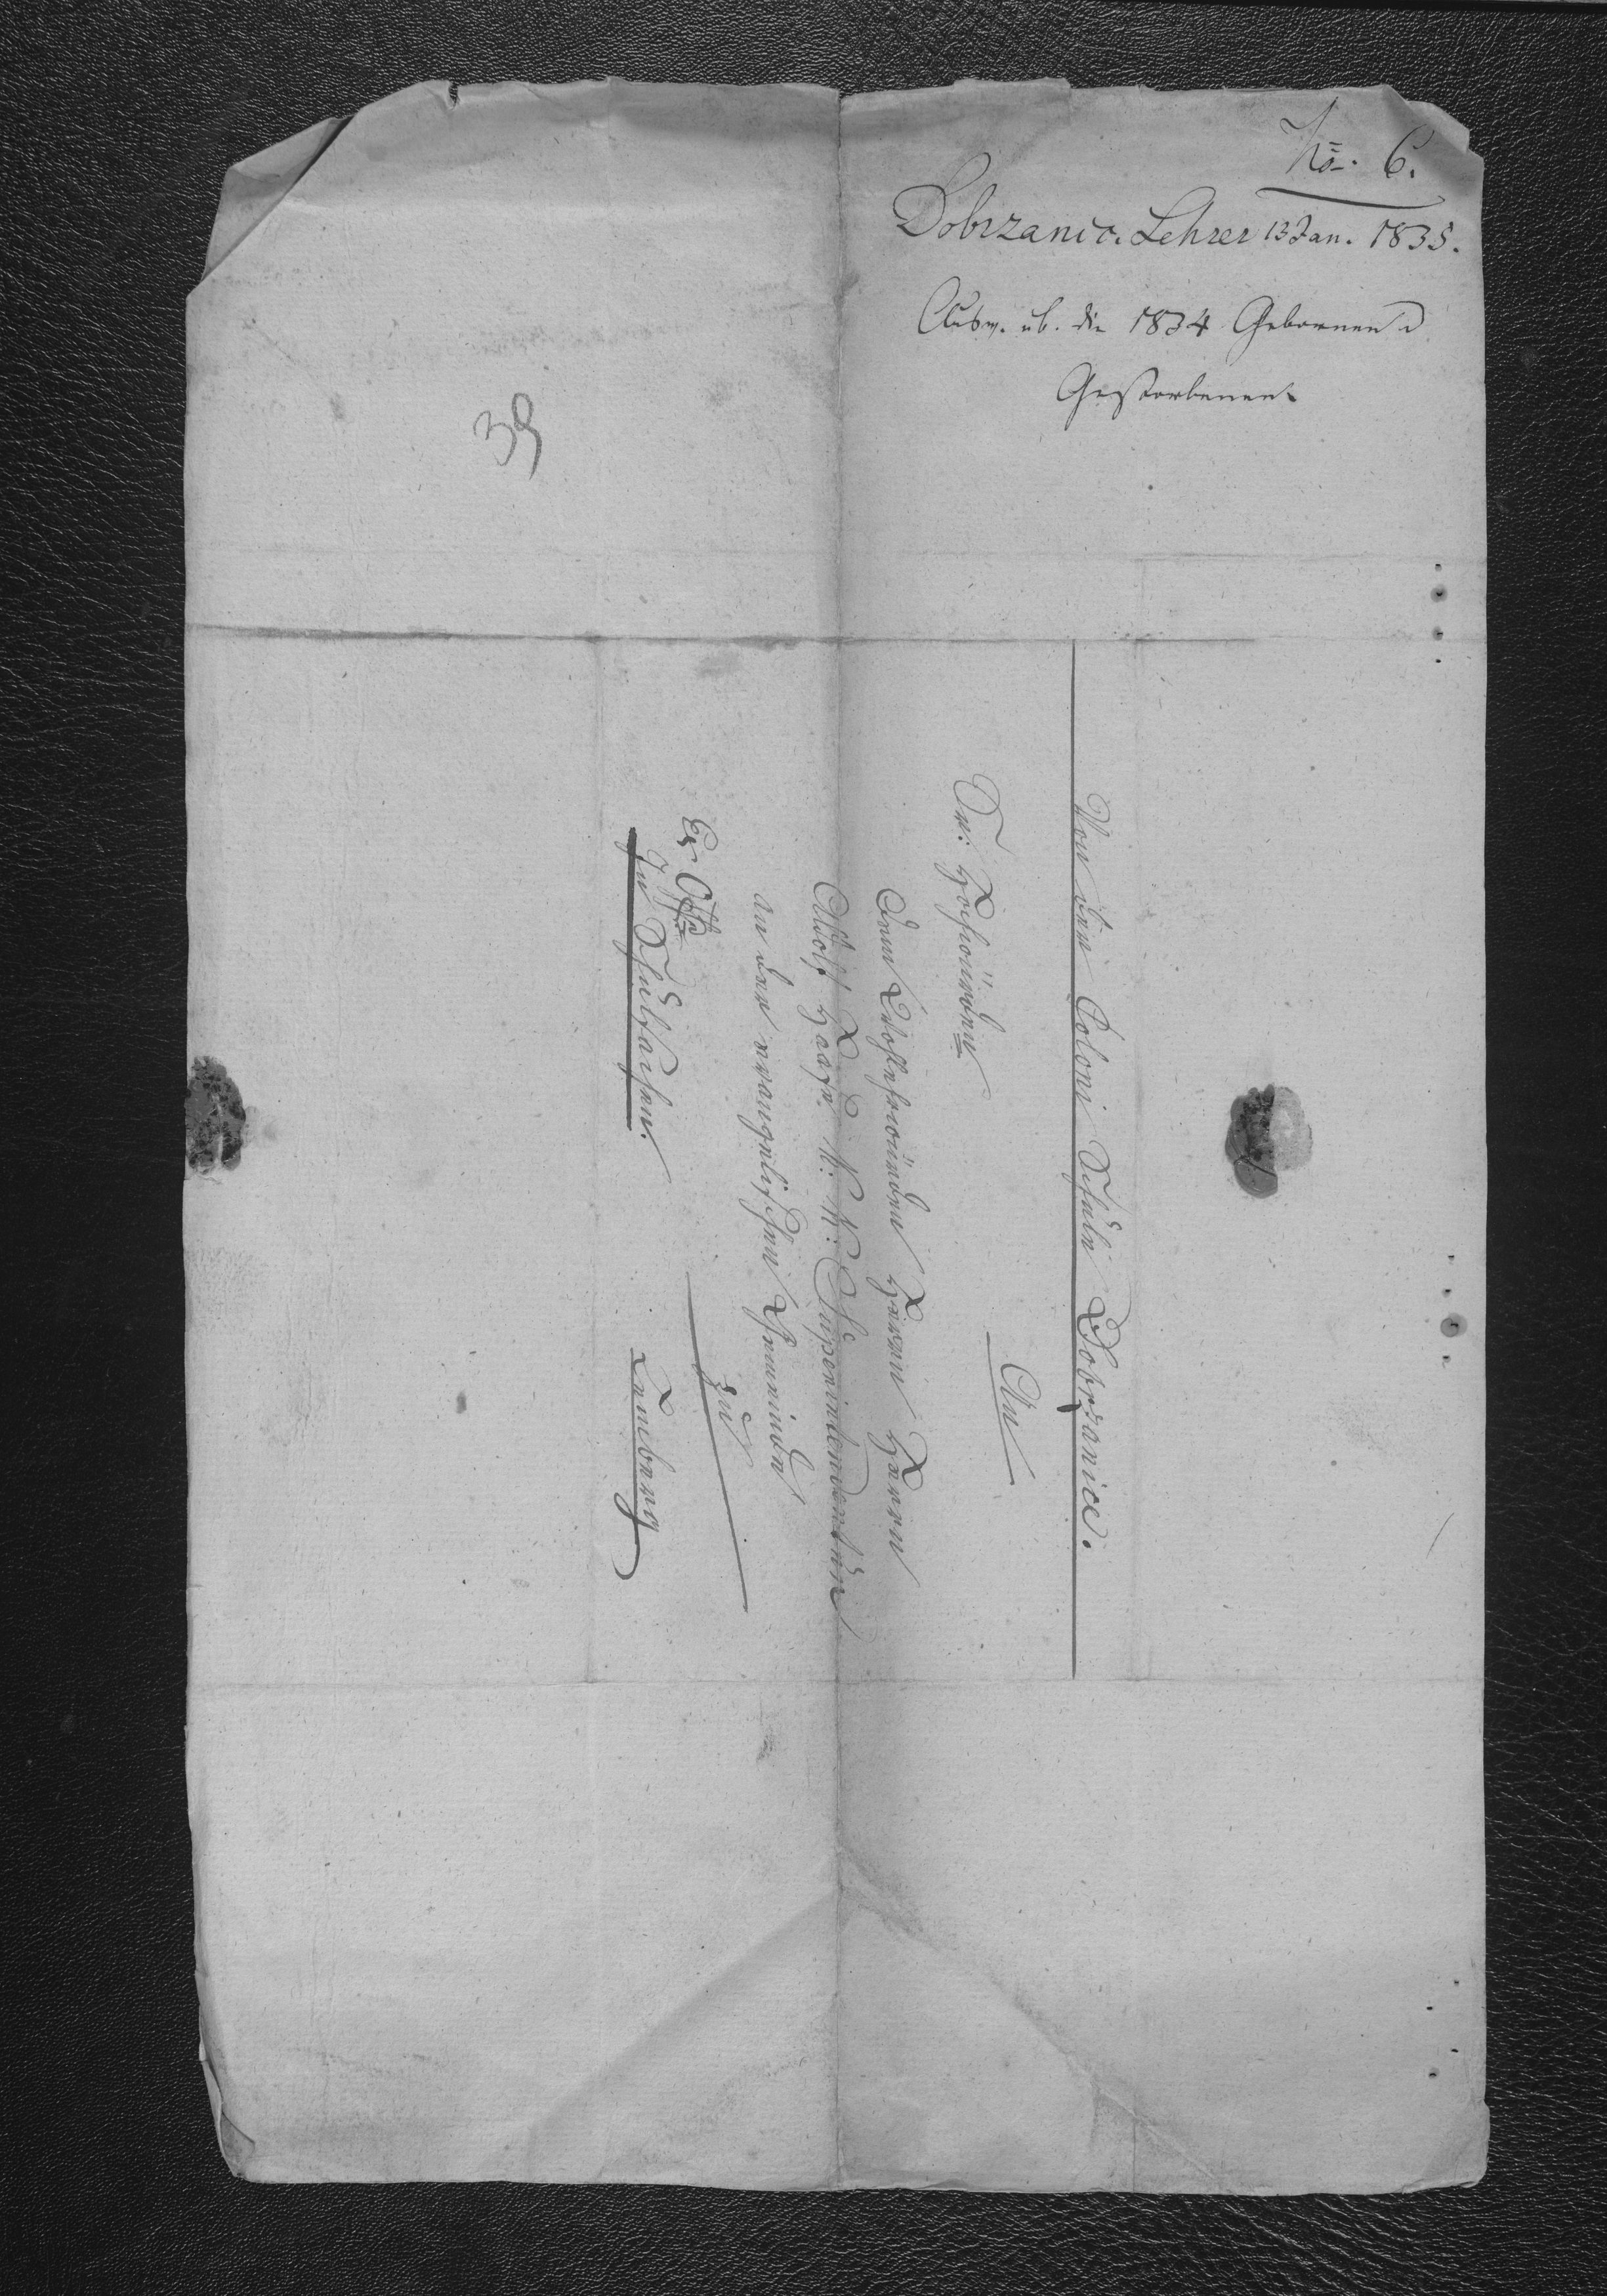 No. 6.
Dobrzanic. Lehrer 13 Jan. 1835.
Ausw. üb. die 1834 Gebornen u
Gestorbenen.
39
Von der Coloni Schule Dobrzanice.
An
Sr: Hochwürden
dem Wohlehrwürden Herrn Herrn
Adolf Haase K: K: Superintendentur
an der evangelischen Gemeinde
zu
Ex Offo
In Schulsachen.
Lemberg